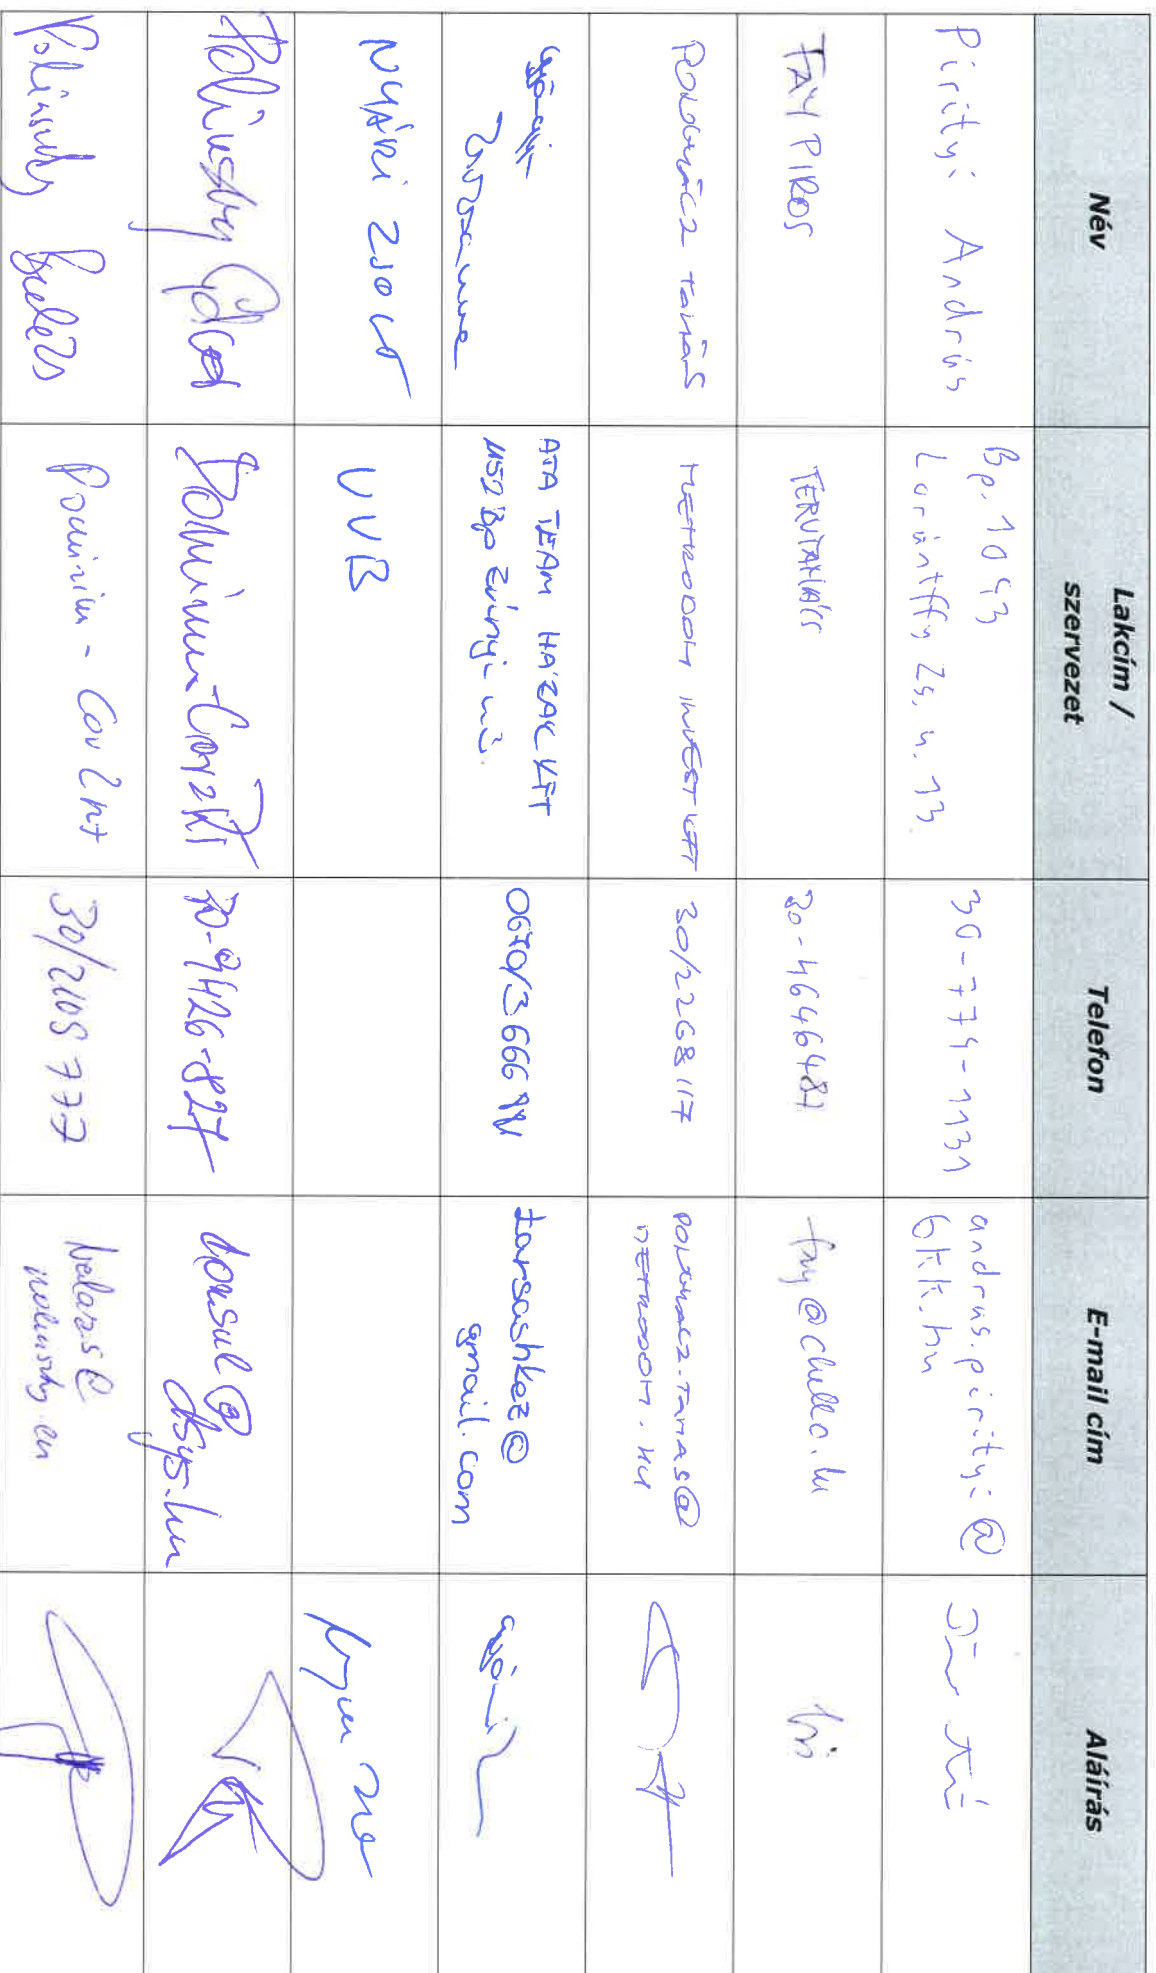 Név
Lakcím /
szervezet
Telefon
E-mail cím
Aláírás
Pirityi András
Bp. 1043
Lorántffy Zs. u. 13.
30-774-1131
andras.pirityi@
6kk.hu
FAY PIROS
TERVTANÁCS
20-4646487
fay@chello.hu
POLONKÁCZ TAMÁS
METRODOM INVEST KFT
30/2268117
METRODOM.HU
Zsuzsanna
ATA TEAM HÁZAK KFT
1152 Bp Zrínyi u.
tarsashkez@
gmail.com
NYÁRI ZSOLT
UVB
Polinszky Gábor
70-9426-827
konsul@
dsys.hu
Polinszky Balázs
30/2105 777
balazs@
polinszky.eu